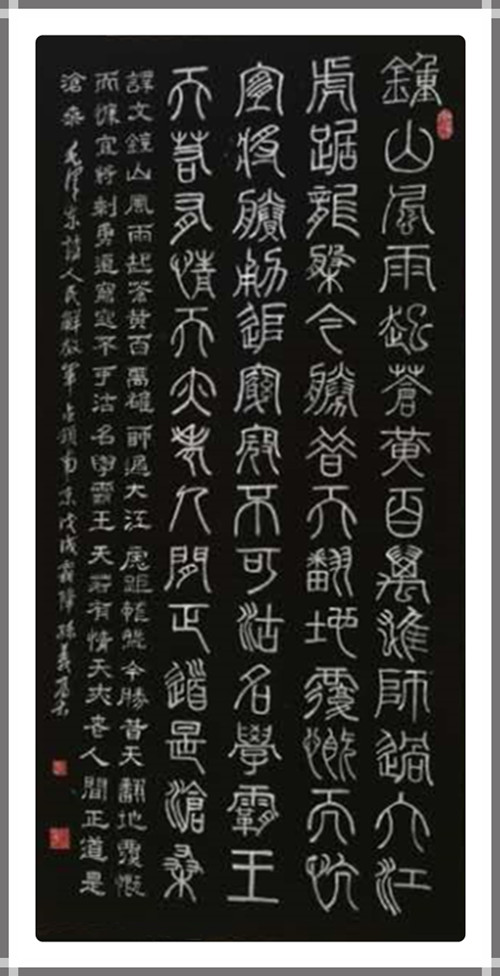 鍾山風雨起蒼黃百萬雄師過大江
虎踞龍槃今勝昔天翻地覆慨而忼
宜將賸勇追窮寇不可沽名學霸王
天若有情天亦老人間正道是滄桑
譯文鐘山風雨起蒼黃百萬雄師過大江虎踞龍盤今勝昔天翻地覆慨
而慷宜將剩勇追窮寇不可沽名學霸王天若有情天亦老人間正道是
滄桑毛澤東詩人民解放軍占領南京戊戌霜降孫義